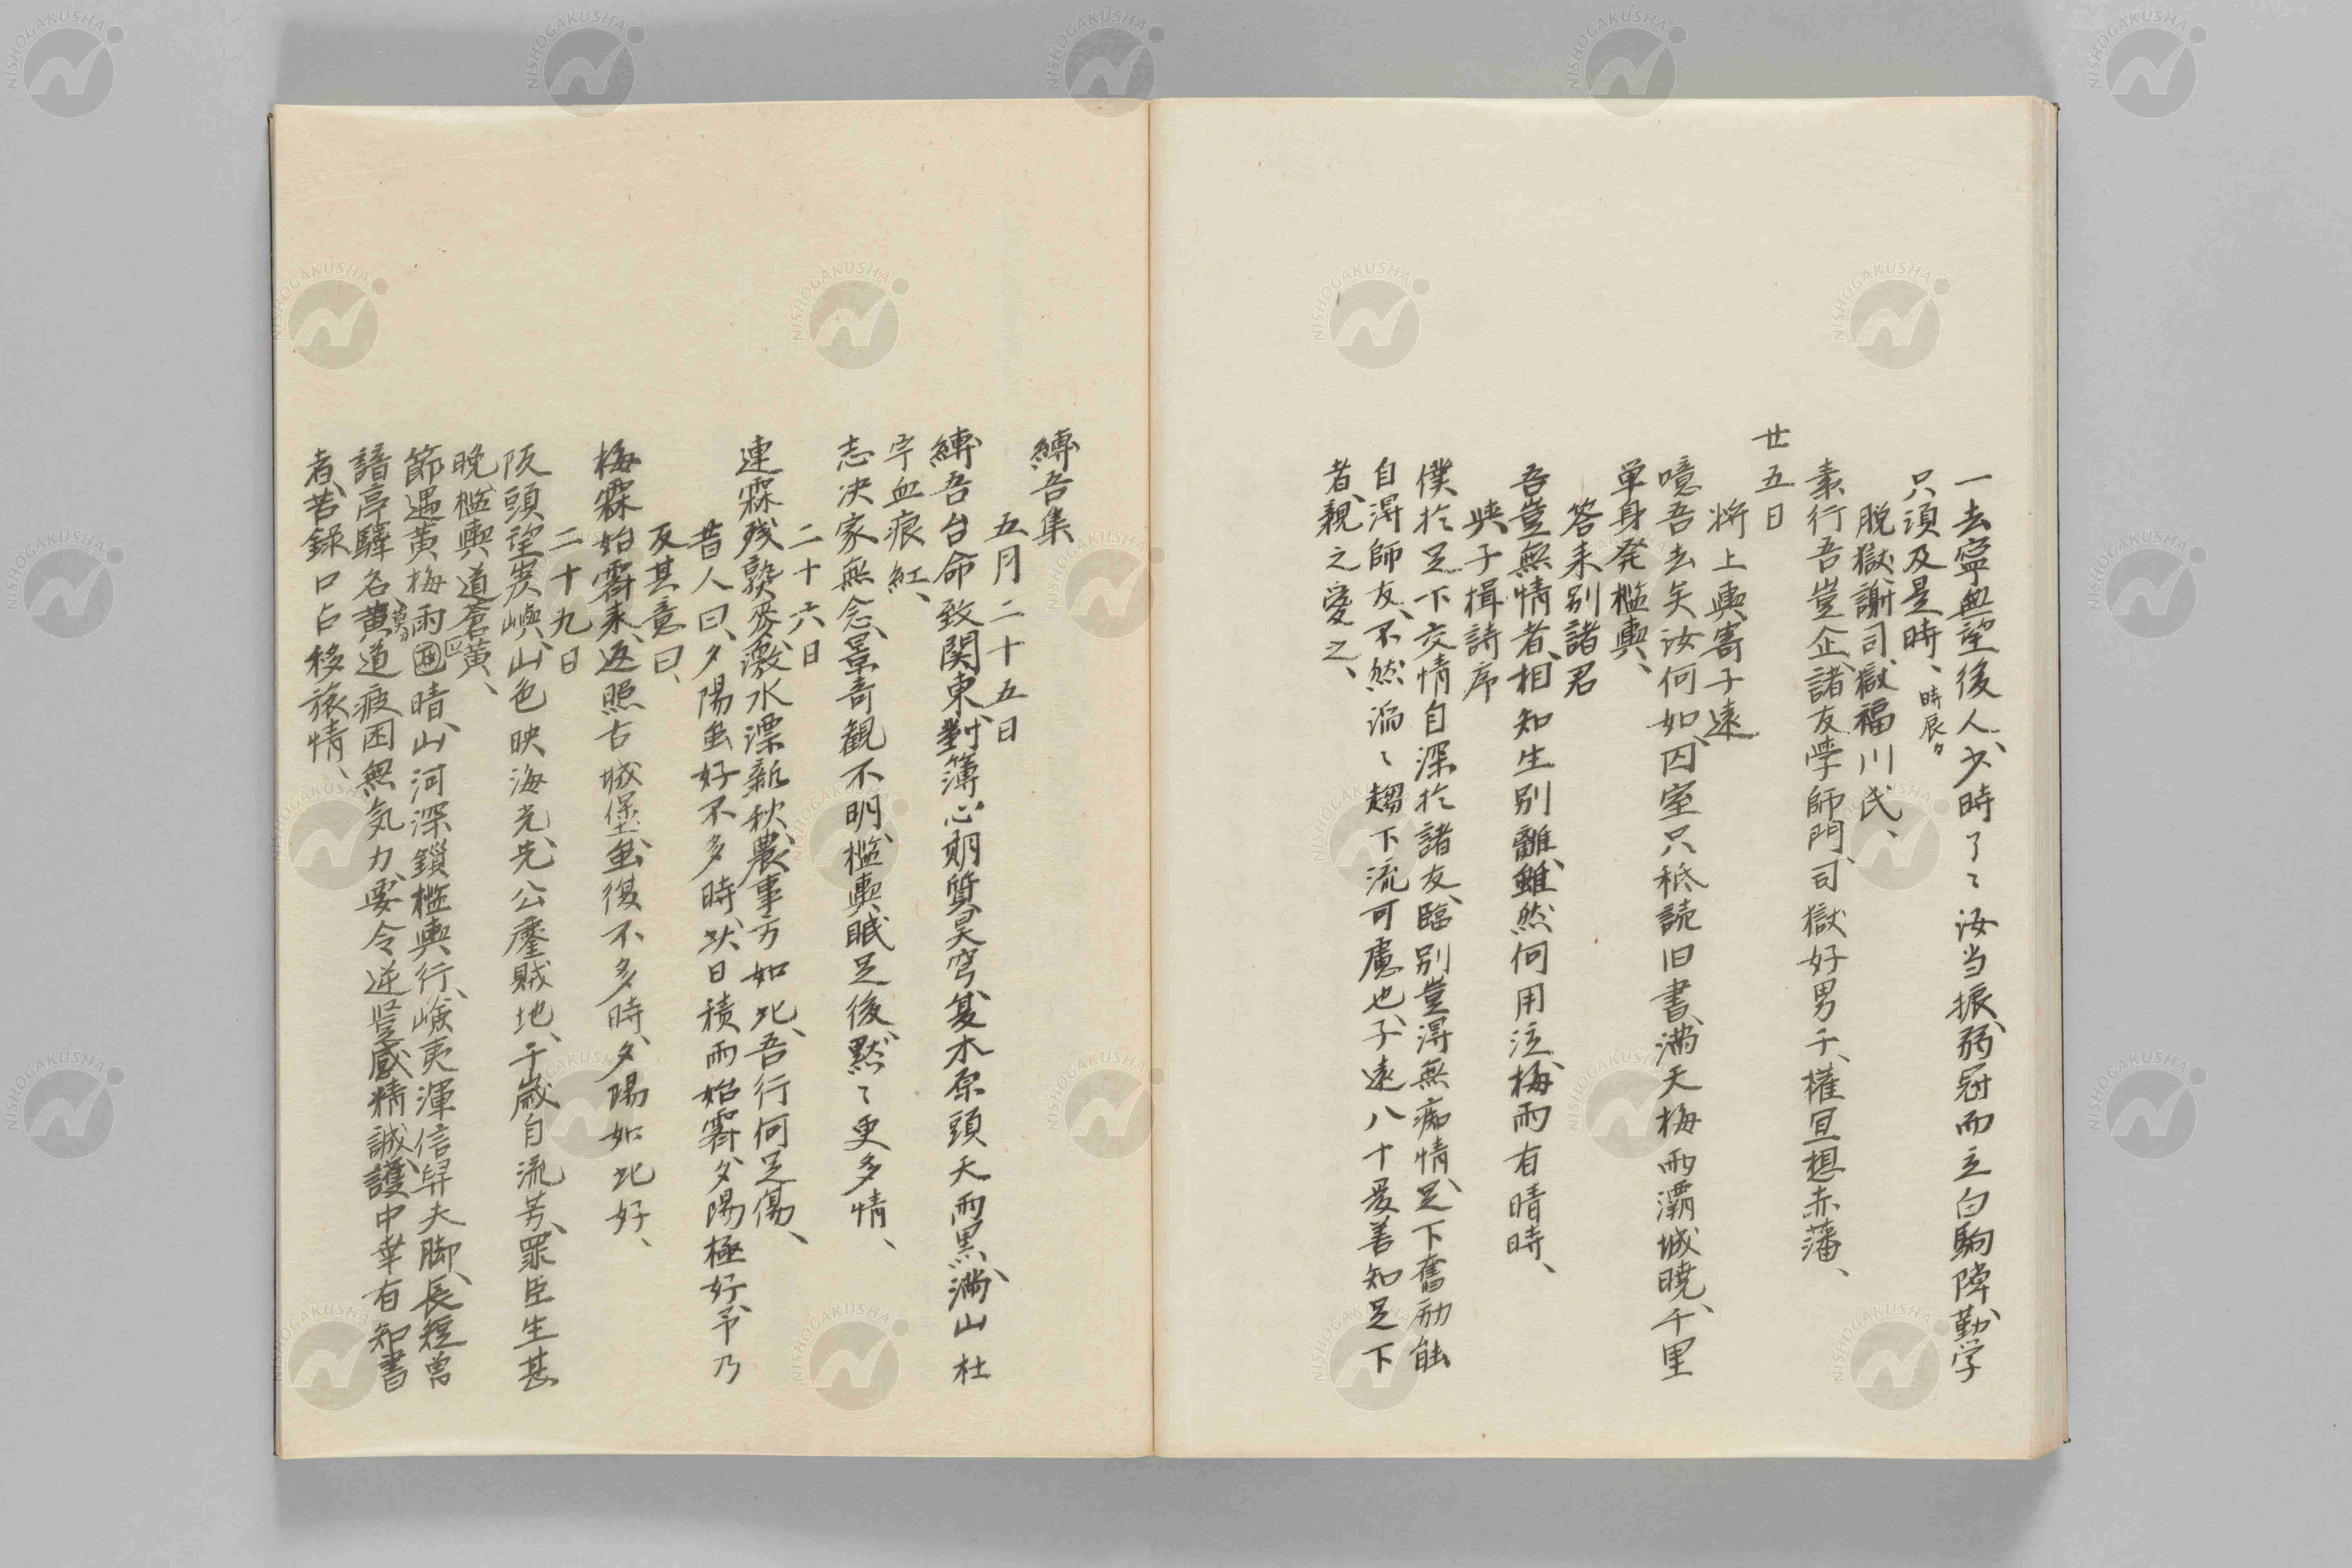 一去寧無望後人、少時了〻汝当振、弱冠而立白駒隙、勤学
只須及是時、時辰カ
脱獄、謝司獄福川氏、
素行吾豈企、諸友学師門、司獄好男子、権宜想赤藩、
廿五日
将上輿寄子遠
噫吾去矣汝何如、囚室只秪読旧書、満天梅雨灞城暁、千里
単身発檻輿、
答来別諸君
吾豈無情者、相知生別離、雖然何用泣、梅雨有晴時、
与子楫詩序
僕於足下交情自深於諸友、臨別豈得無痴情、足下奮励能
自得師友、不然滔〻趨下流可慮也、子遠八十曼善知足下
者、親之愛之、
縛吾集
五月二十五日
縛吾台命致関東、対簿心期質昊穹、夏木原頭天雨黒、満山杜
宇血痕紅、
志決家無念、景奇観不明、檻輿眠足後、黙〻更多情、
二十六日
連霖残熟麦、激水漂新秧、農事方如此、吾行何足傷、
昔人曰、夕陽虽好不多時、此日積雨始霽、夕陽極好、予乃
反其意曰、
梅霖始霽来、返照古城堡、虽復不多時、夕陽如此好、
二十九日
阪頭望炭嶼、山色映海光、先公鏖賊地、千歳自流芳、罪臣生甚
晩、檻輿道蒼黄、
節遇黄梅雨 晴、山河深鎖檻輿行、嶮夷渾信舁夫脚、長短曽
諳亭駅名、黄道疲困無気力、要令逆豎感精誠、護中幸有知書
者、苦録口占移旅情、
NISHOGAKUSHA